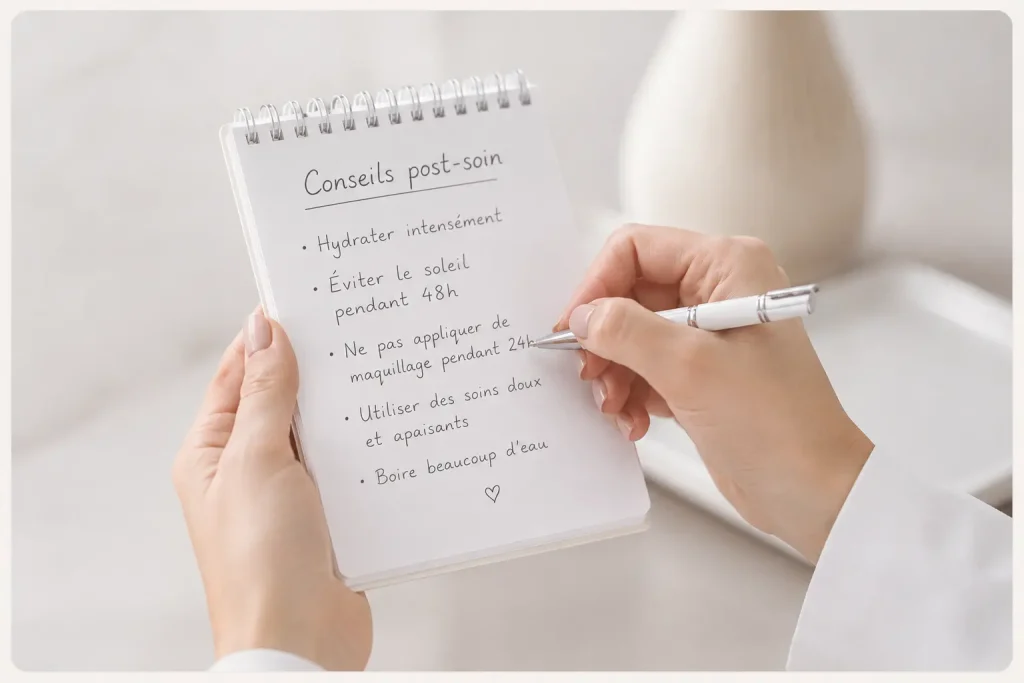 Conseils post-soin
• Hydrater intensément
• Éviter le soleil
pendant 48h
• Ne pas appliquer de
maquillage pendant 24h
• Utiliser des soins doux
et apaisants
• Boire beaucoup d'eau
♡